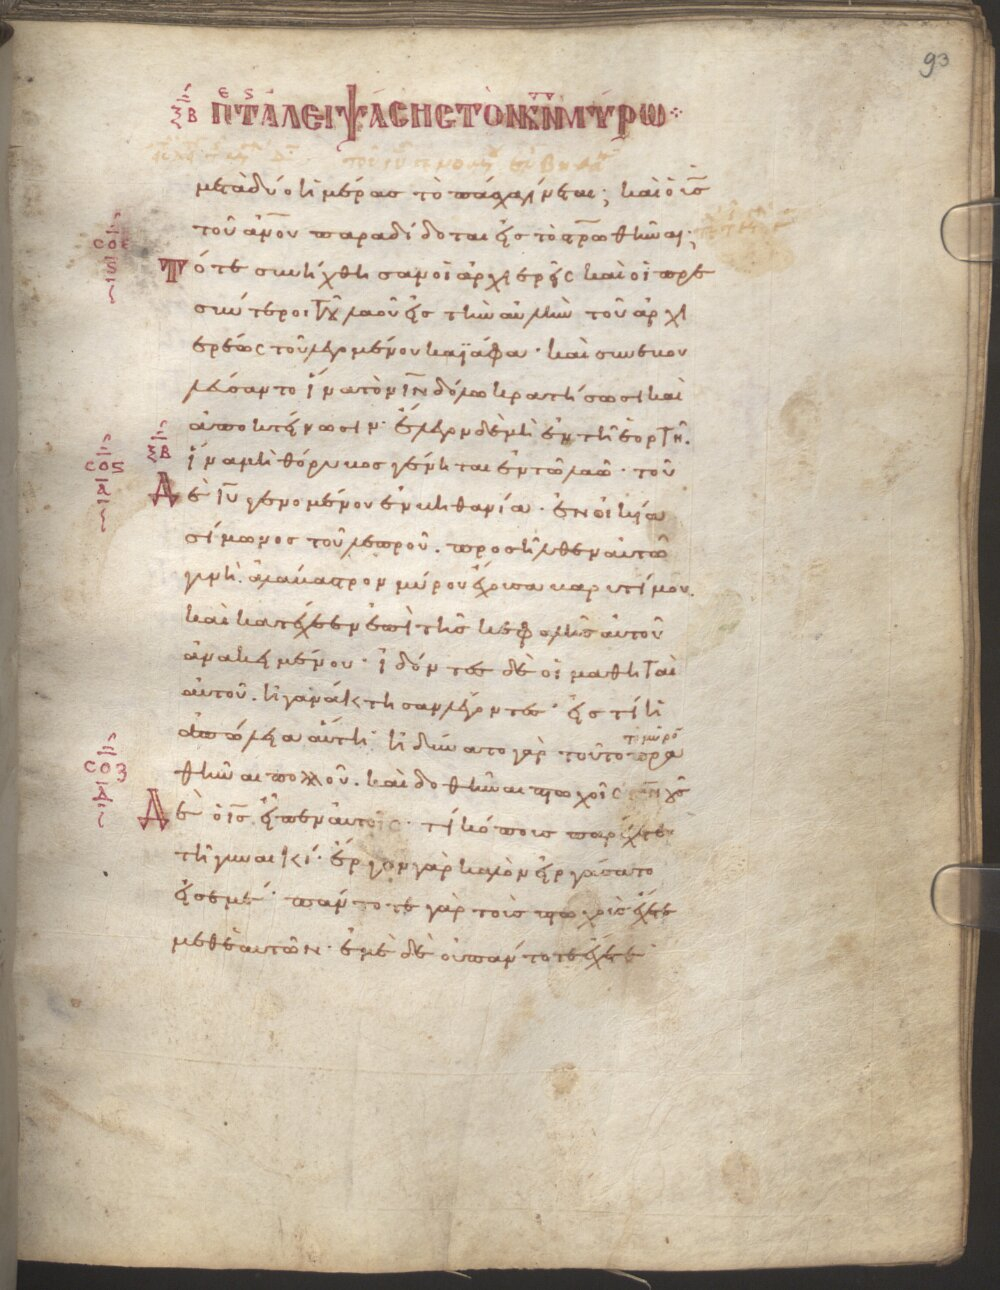 93
ξβ π τ αλειψάσης τὸν κν μύρω
μετὰ δύο ἡμέρας τὸ πάσχα γίνεται· καὶ ὁ υς
τοῦ ανου παραδίδοται εἰς τὸ σταυρωθῆναι·
Τότε συνήχθησαν οἱ ἀρχιερεῖς καὶ οἱ πρε
σβύτεροι τοῦ λαοῦ εἰς τὴν αὐλὴν τοῦ ἀρχι
ερέως τοῦ λεγομένου καϊάφα· καὶ συνεβου
λεύσαντο ἵνα τὸν ιν δόλω κρατήσωσι καὶ
ἀποκτείνωσιν· ἔλεγον δὲ μὴ ἐν τῆ ἑορτῆ·
ξβ
ἵνα μὴ θόρυβος γένηται ἐν τῶ λαῶ· τοῦ
Δὲ ιυ γενομένου ἐν βηθανία· ἐν οἰκία
σίμωνος τοῦ λεπροῦ· προσῆλθεν αὐτῶ
γυνὴ ἀλάβαστρον μύρου ἔχουσα βαρυτίμου·
καὶ κατέχεεν ἐπὶ τῆς κεφαλῆς αὐτοῦ
ἀνακειμένου· ἰδόντες δὲ οἱ μαθηταὶ
αὐτοῦ· ἠγανάκτησαν λέγοντες· εἰς τί ἡ
ἀπώλεια αὕτη· ἠδύνατο γὰρ τοῦτο τὸ μύρον πρα
θῆναι πολλοῦ· καὶ δοθῆναι πτωχοῖς γνοὺς
Δὲ ὁ ις εἶπεν αὐτοῖς· τί κόπους παρέχετε
τῆ γυναικί· ἔργον γὰρ καλὸν εἰργάσατο
εἰς ἐμέ· πάντοτε γὰρ τοὺς πτωχοὺς ἔχετε
μεθ' ἑαυτῶν· ἐμὲ δὲ οὐ πάντοτε ἔχετε